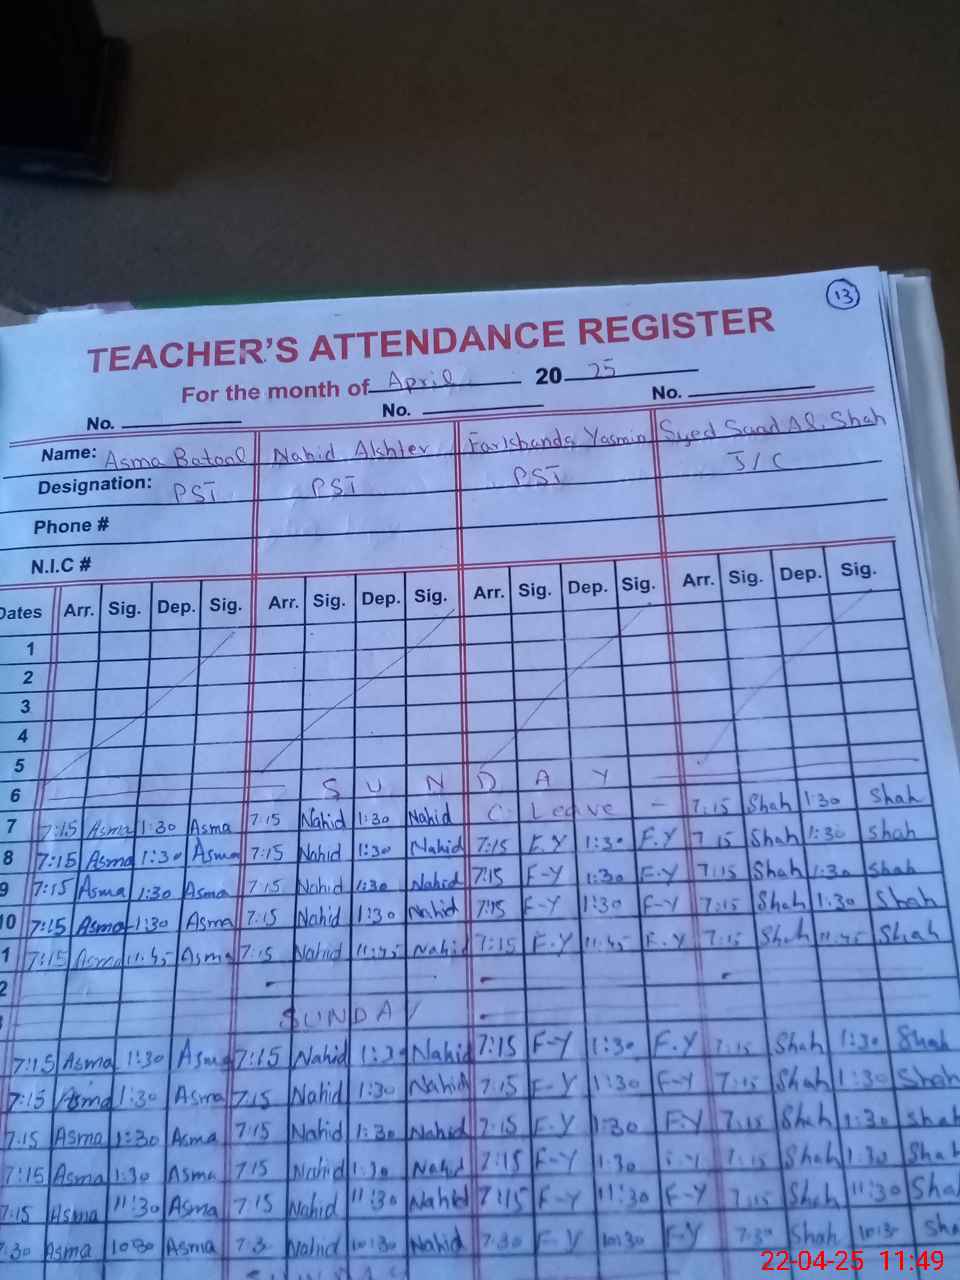 13
TEACHER'S ATTENDANCE REGISTER
For the month of April 20 25
No. No. No.
Name: Asma Batool Nahid Akhter Farkhanda Yasmin Syed Saad Ali Shah
Designation: PST PST PST J/C
Phone #
N.I.C #
Dates Arr. Sig. Dep. Sig. Arr. Sig. Dep. Sig. Arr. Sig. Dep. Sig. Arr. Sig. Dep. Sig.
1
2
3
4
5
6 SUNDAY
7 7:15 Asma 1:30 Asma 7:15 Nahid 1:30 Nahid C. Leave - 7:15 Shah 1:30 Shah
8 7:15 Asma 1:30 Asma 7:15 Nahid 1:30 Nahid 7:15 F.Y 1:30 F.Y 7:15 Shah 1:30 Shah
9 7:15 Asma 1:30 Asma 7:15 Nahid 1:30 Nahid 7:15 F-Y 1:30 F-Y 7:15 Shah 1:30 Shah
10 7:15 Asma 1:30 Asma 7:15 Nahid 1:30 Nahid 7:15 F-Y 1:30 F-Y 7:15 Shah 1:30 Shah
1 7:15 Asma 11:45 Asma 7:15 Nahid 11:45 Nahid 7:15 F.Y 11:45 F.Y 7:15 Shah 11:45 Shah
2
SUNDAY
7:15 Asma 1:30 Asma 7:15 Nahid 1:30 Nahid 7:15 F-Y 1:30 F.Y 7:15 Shah 1:30 Shah
7:15 Asma 1:30 Asma 7:15 Nahid 1:30 Nahid 7:15 F-Y 1:30 F-Y 7:15 Shah 1:30 Shah
7:15 Asma 1:30 Asma 7:15 Nahid 1:30 Nahid 7:15 F.Y 1:30 F.Y 7:15 Shah 1:30 Shah
7:15 Asma 1:30 Asma 7:15 Nahid 1:30 Nahid 7:15 F-Y 1:30 F.Y 7:15 Shah 1:30 Shah
7:15 Asma 11:30 Asma 7:15 Nahid 11:30 Nahid 7:15 F-Y 11:30 F-Y 7:15 Shah 11:30 Sha
7:30 Asma 10:30 Asma 7:3 Nahid 10:30 Nahid 7:30 F-Y 10:30 F-Y 7:30 Shah 10:3 Sha
SUNDAY
22-04-25 11:49